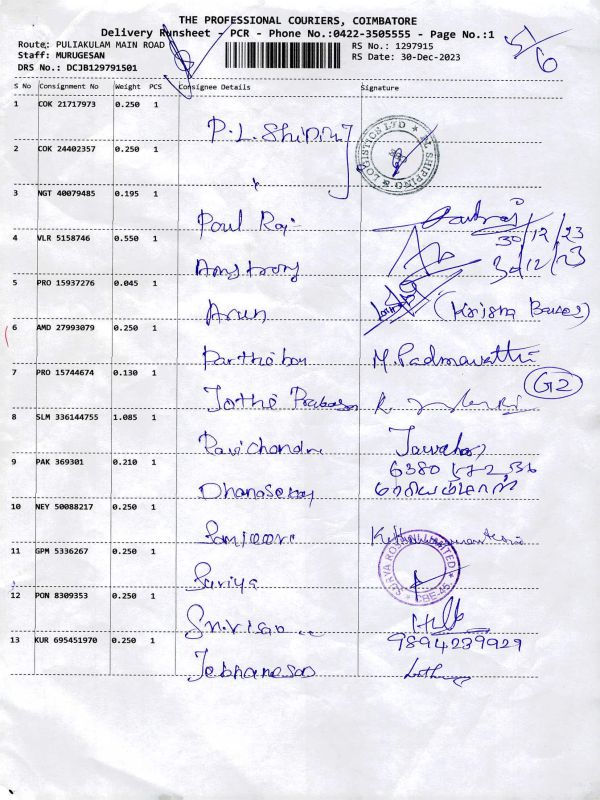 THE PROFESSIONAL COURIERS, COIMBATORE
Delivery Runsheet - PCR - Phone No.:0422-3505555 - Page No.:1
5/6
Route: PULIAKULAM MAIN ROAD
RS No.: 1297915
Staff: MURUGESAN
RS Date: 30-Dec-2023
DRS No.: DCJB129791501
S No Consignment No Weight PCS Consignee Details Signature
1 COK 21717973 0.250 1 P.L. Shiping
2 COK 24402357 0.250 1
SHIPPING & LOGISTICS LTD
3 NGT 40079485 0.195 1 Paul Raj
30/12/23
4 VLR 5158746 0.550 1 Amstrong 30/12/23
5 PRO 15937276 0.045 1 Arun (Krisna
6 AMD 27993079 0.250 1 Parthiban M. Padmavathi
7 PRO 15744674 0.130 1 Jothi G2
8 SLM 336144755 1.085 1 Ravichandran Jawahar
9 PAK 369301 0.210 1 Dhanasekar 6380
10 NEY 50088217 0.250 1
11 GPM 5336267 0.250 1 Suriya
SURYA LIMITED CBE-45
12 PON 8309353 0.250 1
13 KUR 695451970 0.250 1 9894239929